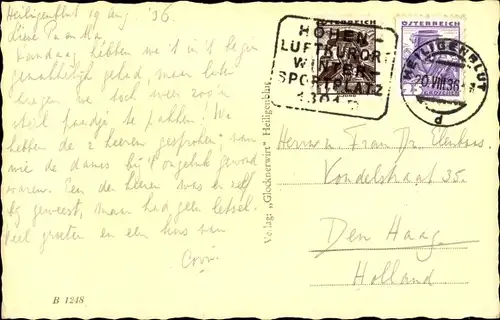 Heiligenblut 19 Aug. '36
Lieve
Vandaag hebben we 't in 't begin
gemakkelijk gehad, maar later
kregen we toch weer zoo'n
steil paadje te pakken! We
hebben de 2 heeren gesproken, van
wie de dames bij 't ongeluk gewond
waren. Een der heeren was er zelf
bij geweest, maar had geen letsel.
Veel groeten en een kus van
B 1248
Verlag: „Glocknerwirt" Heiligenblut
HÖHEN-
LUFTKURORT
WINTER
SPORTPLATZ
1301 m
ÖSTERREICH
ÖSTERREICH
HEILIGENBLUT
20.VIII.36
d
Herrn u. Frau Dr.
Vondelstraat 35.
Den Haag
Holland